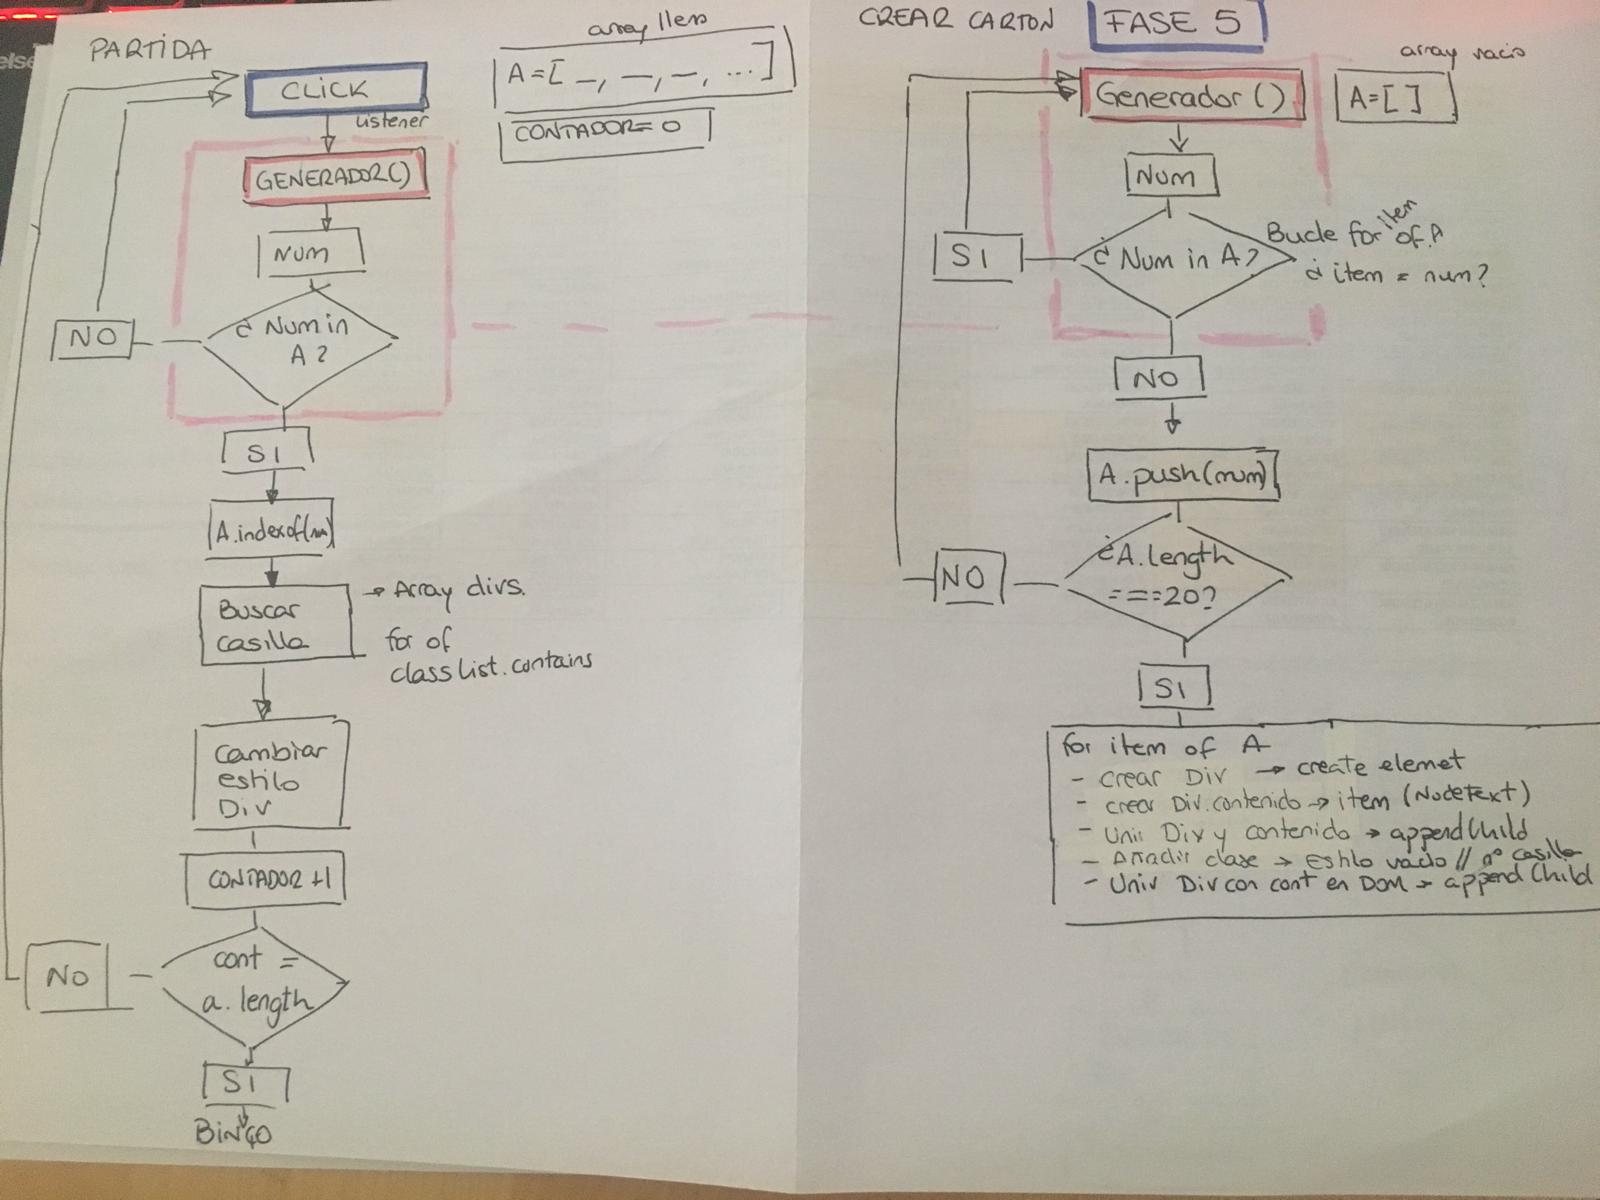 else
PARTIDA
array lleno
CLICK
A=[ _, _, _, ...]
Listener
CONTADOR= 0
GENERADOR()
NUM
¿ Num in
A ?
NO
SI
A.indexof(num)
Buscar
casilla
→ Array divs.
for of
classList.contains
Cambiar
estilo
Div
CONTADOR +1
cont =
a. length
NO
SI
BINGO
CREAR CARTON
FASE 5
array vacio
Generador()
A=[ ]
NUM
¿ Num in A?
SI
Bucle for item of A
¿ item = num?
NO
A.push(num)
¿A.length
===20?
NO
SI
for item of A
- crear Div → create elemet
- crear Div.contenido → item (NodeText)
- Unir Div y contenido → appendChild
- Añadir clase → Estilo vacio // nº casilla
- Unir Div con cont en DOM → append Child